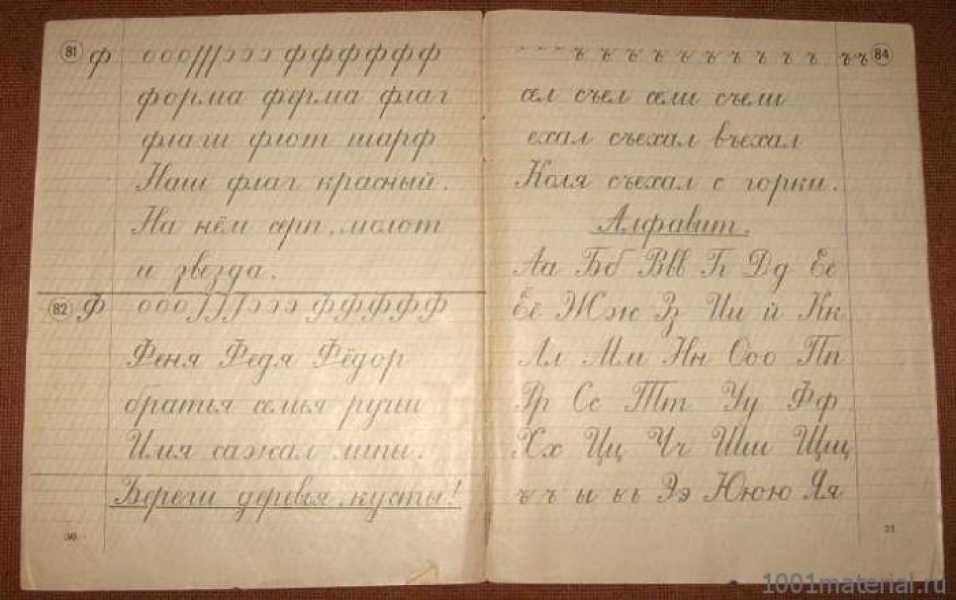 81 ф ооо///эээ ф ф ф ф ф ф
форма ферма флаг
флаги флот шарф
Наш флаг красный.
На нём серп, молот
и звезда.
82 Ф ооо эээ Ф Ф Ф Ф Ф
Феня Федя Фёдор
братья семья ручьи
Илья сажал липы.
Береги деревья, кусты!
30
ъ ъ ъ ъ ъ ъ ъ ъ ъ ъ ъъ 84
сел съел сели съели
ехал съехал въехал
Коля съехал с горки.
Алфавит.
Аа Бб Ввв Гг Дд Ее
Ёё Жж Зз Ии й Кк
Лл Мм Нн Ооо Пп
Рр Сс Тт Уу Фф
Хх Цц Чч Шш Щщ
ъ ъ ы ь Ээ Ююю Яя
31
1001material.ru